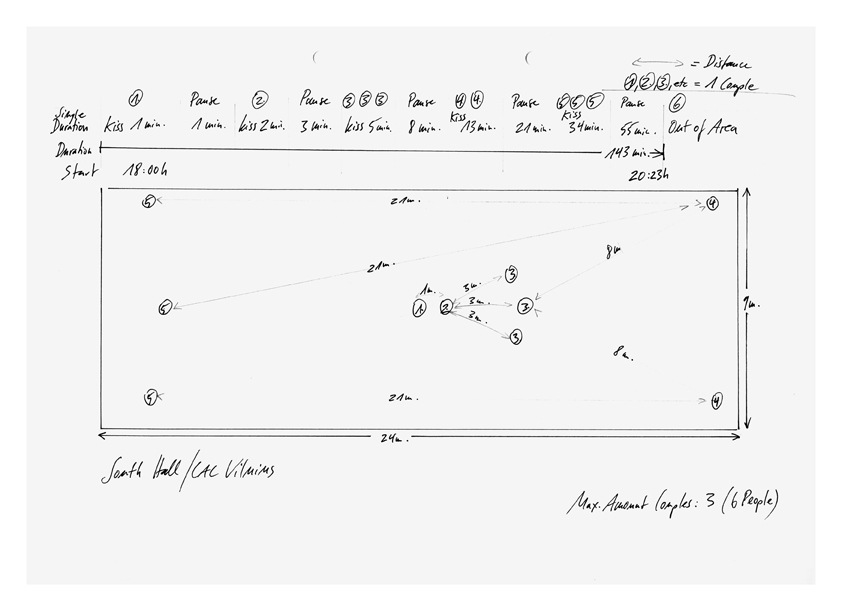 = Distance
①②③, etc = 1 Couple
① Pause ② Pause ③③③ Pause ④④ Pause ⑤⑤⑤ Pause ⑥
Single Duration Kiss 1 min. 1 min. Kiss 2 min. 3 min. Kiss 5 min. 8 min. Kiss 13 min. 21 min. Kiss 34 min. 55 min. Out of Area
Duration 143 min.
Start 18:00h 20:23h
⑤ 21m. ④
8m
21m.
③
1m. 3m.
⑤ ① ② 3m. ③
3m.
③
8m. 9m.
⑤ 21m. ④
24m.
South Hall/CAC Vilnius
Max. Amount Couples: 3 (6 People)